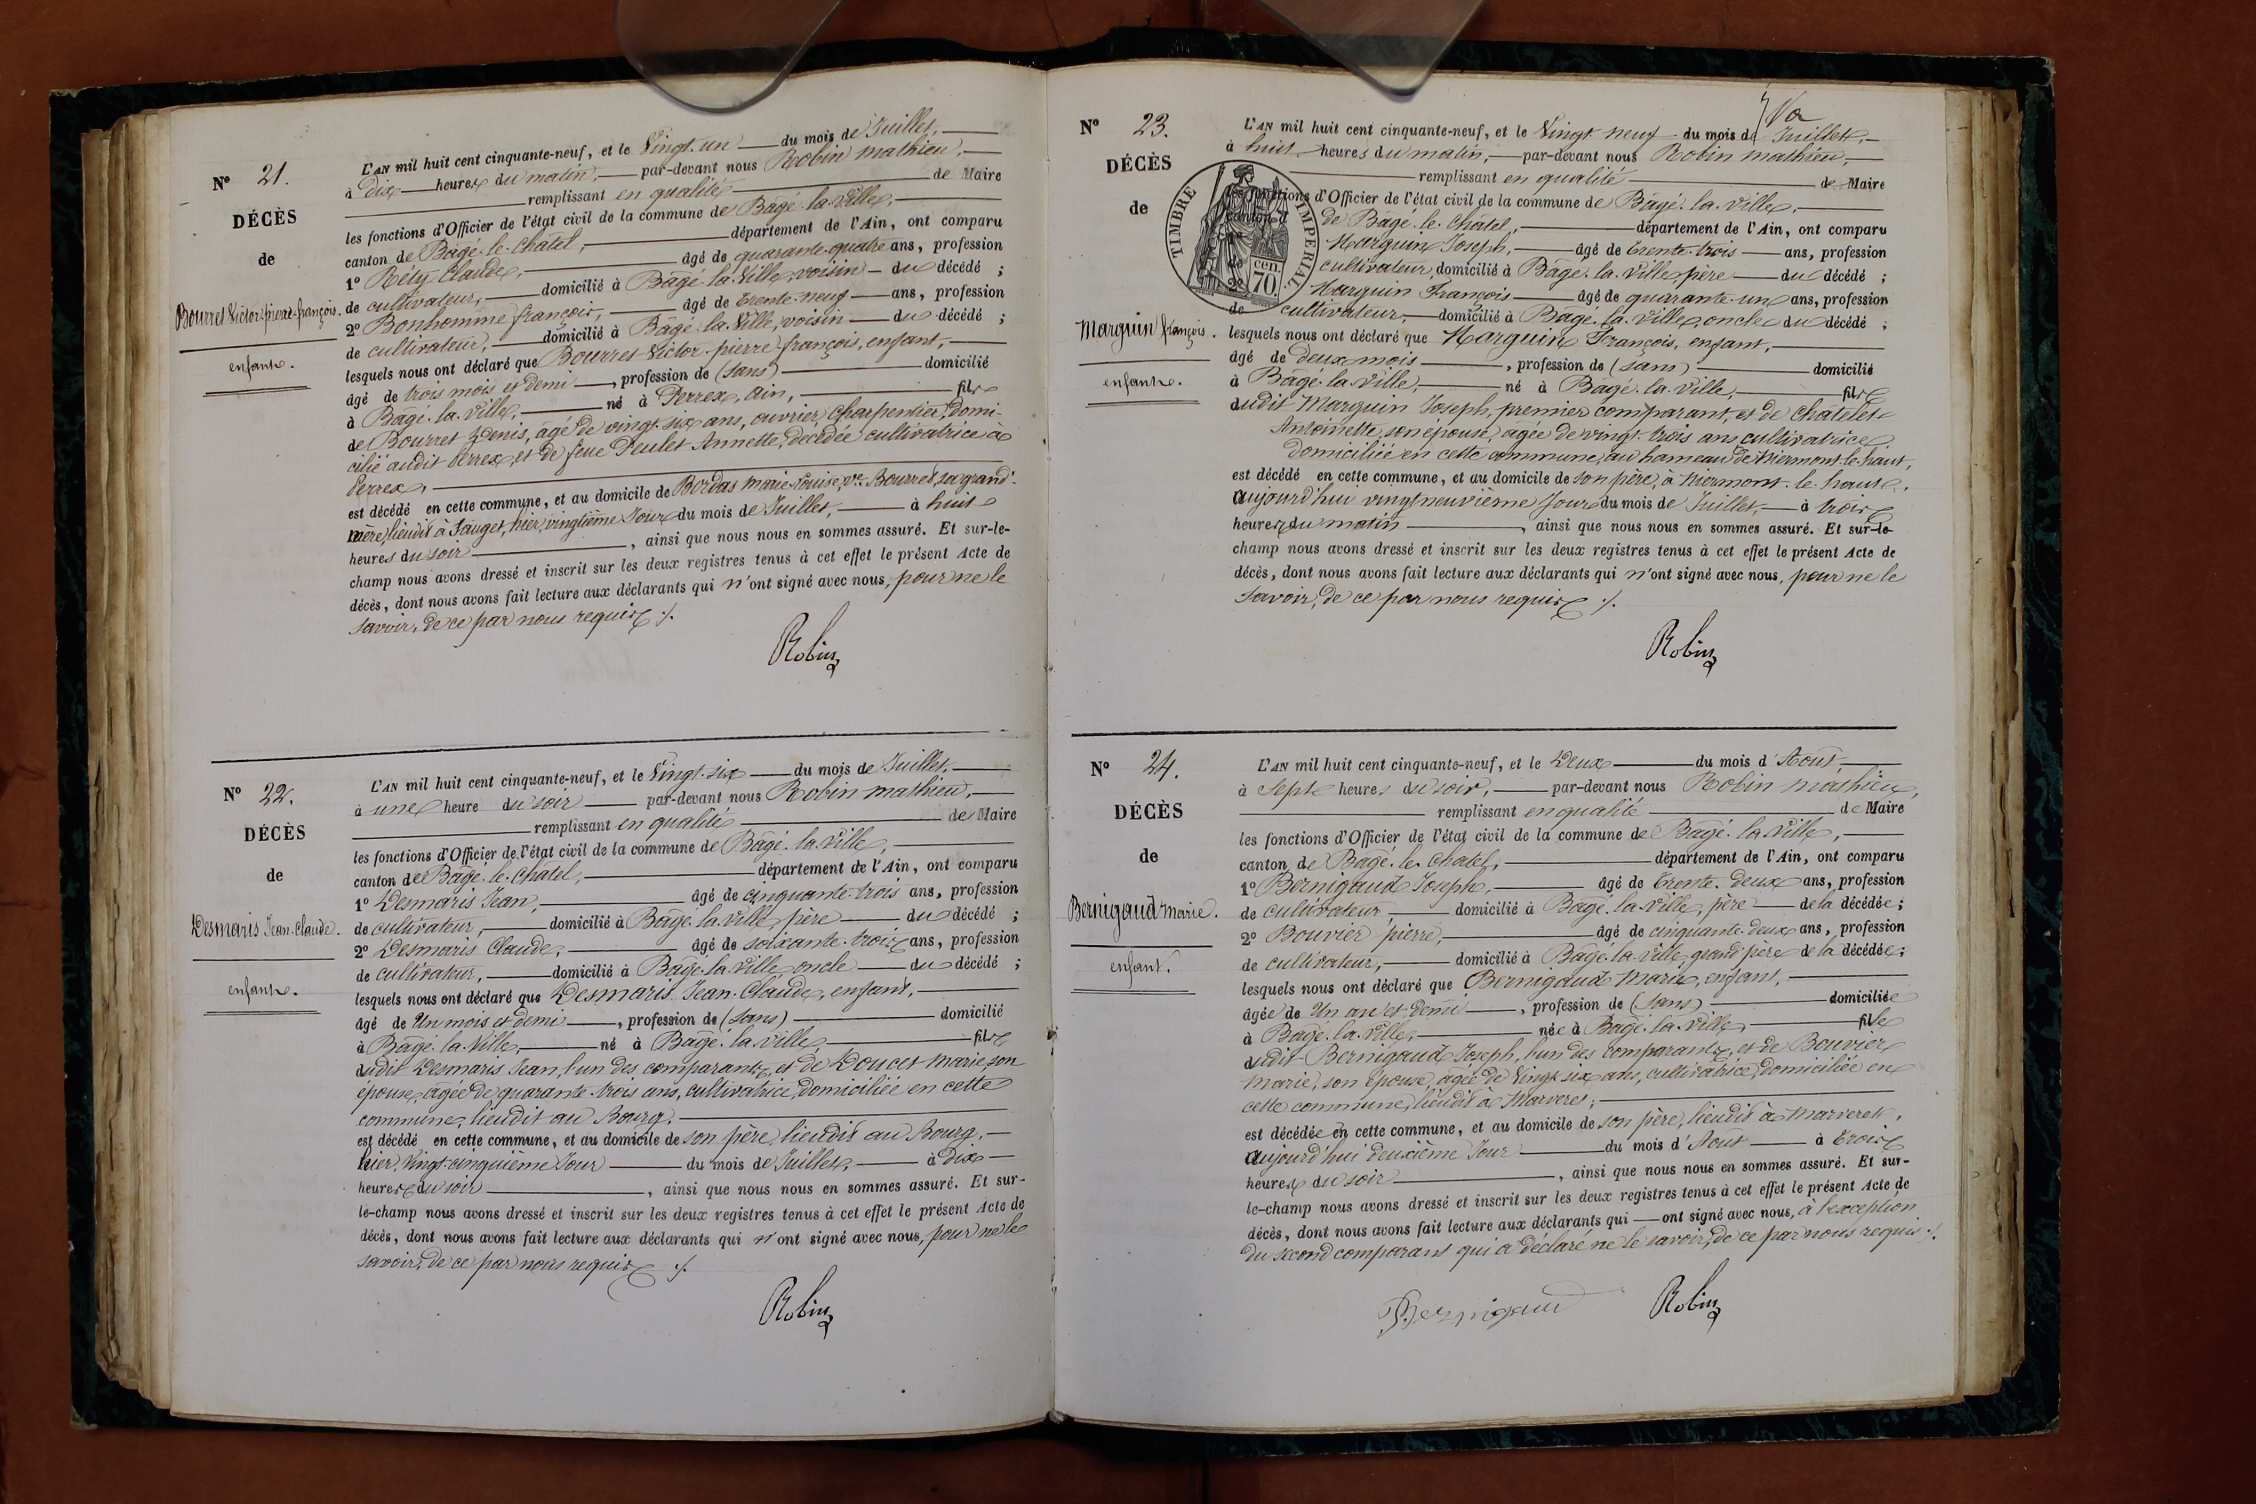 N° 21.
DÉCÈS
de
Bourret Victor-pierre-françois.
enfant.
L'AN mil huit cent cinquante-neuf, et le Vingt-un du mois de Juillet,
à Dix heures du matin, par-devant nous Robin mathieu,
remplissant en qualité de Maire
les fonctions d'Officier de l'état civil de la commune de Bâgé-la-Ville,
canton de Bâgé-le-Châtel, département de l'Ain, ont comparu
1° Réty Claude, âgé de quarante-quatre ans, profession
de cultivateur, domicilié à Bâgé-la-Ville, voisin du décédé ;
2° Bonhomme françois, âgé de trente-neuf ans, profession
de cultivateur, domicilié à Bâgé-la-Ville, voisin du décédé ;
lesquels nous ont déclaré que Bourret Victor-pierre-françois, enfant,
âgé de trois mois et demi, profession de (sans) domicilié
à Bâgé-la-Ville, né à Perrex, Ain, fils
de Bourret Denis, âgé de vingt-six ans, ouvrier charpentier, domi-
cilié audit Perrex, et de feue Annette, décédée cultivatrice à
Perrex,
est décédé en cette commune, et au domicile de Bordas marie-Louise, ve Bourret, sa grand'-
mère, lieudit à Sauget, hier, vingtième Jour du mois de Juillet, à huit
heures du soir, ainsi que nous nous en sommes assuré. Et sur-le-
champ nous avons dressé et inscrit sur les deux registres tenus à cet effet le présent Acte de
décès, dont nous avons fait lecture aux déclarants qui n'ont signé avec nous, pour ne le
savoir, de ce par nous requis ./.
Robin
N° 22.
DÉCÈS
de
Desmaris Jean-Claude.
enfant.
L'AN mil huit cent cinquante-neuf, et le Vingt-six du mois de Juillet,
à une heure du soir par-devant nous Robin mathieu,
remplissant en qualité de Maire
les fonctions d'Officier de l'état civil de la commune de Bâgé-la-Ville,
canton de Bâgé-le-Châtel, département de l'Ain, ont comparu
1° Desmaris Jean, âgé de cinquante-trois ans, profession
de cultivateur, domicilié à Bâgé-la-Ville, père du décédé ;
2° Desmaris Claude, âgé de soixante-trois ans, profession
de cultivateur, domicilié à Bâgé-la-Ville oncle du décédé ;
lesquels nous ont déclaré que Desmaris Jean-Claude, enfant,
âgé de Un mois et demi, profession de (sans) domicilié
à Bâgé-la-Ville, né à Bâgé-la-Ville, fils
dudit Desmaris Jean, l'un des comparants, et de Doucet marie, son
épouse, âgée de quarante-trois ans, cultivatrice, domiciliée en cette
commune, lieudit au Bourg,
est décédé en cette commune, et au domicile de son père, lieudit au Bourg,
hier, Vingt-cinquième Jour du mois de Juillet, à Dix
heures du soir, ainsi que nous nous en sommes assuré. Et sur-
le-champ nous avons dressé et inscrit sur les deux registres tenus à cet effet le présent Acte de
décès, dont nous avons fait lecture aux déclarants qui n'ont signé avec nous, pour ne le
savoir, de ce par nous requis ./.
Robin
N° 23.
DÉCÈS
de
Marguin françois.
enfant.
TIMBRE IMPERIAL
70 cen.
L'AN mil huit cent cinquante-neuf, et le Vingt-neuf du mois de Juillet,
à huit heures du matin, par-devant nous Robin mathieu,
remplissant en qualité de Maire
les fonctions d'Officier de l'état civil de la commune de Bâgé-la-Ville,
canton de Bâgé-le-Châtel, département de l'Ain, ont comparu
1° Marguin Joseph, âgé de trente-trois ans, profession
de cultivateur, domicilié à Bâgé-la-Ville, père du décédé ;
2° Marguin François âgé de quarante-un ans, profession
de cultivateur, domicilié à Bâgé-la-Ville, oncle du décédé ;
lesquels nous ont déclaré que Marguin François, enfant,
âgé de deux mois, profession de (sans) domicilié
à Bâgé-la-Ville, né à Bâgé-la-Ville, fils
dudit Marguin Joseph, premier comparant, et de Châtelet
Antoinette, son épouse, âgée de vingt-trois ans cultivatrice
domiciliée en cette commune, au hameau de Miermont-le-haut,
est décédé en cette commune, et au domicile de son père, à Miermont-le-haut,
aujourd'hui vingt-neuvième Jour du mois de Juillet, à trois
heures du matin, ainsi que nous nous en sommes assuré. Et sur-le-
champ nous avons dressé et inscrit sur les deux registres tenus à cet effet le présent Acte de
décès, dont nous avons fait lecture aux déclarants qui n'ont signé avec nous, pour ne le
savoir, de ce par nous requis ./.
Robin
N° 24.
DÉCÈS
de
Bernigaud marie.
enfant.
L'AN mil huit cent cinquante-neuf, et le Deux du mois d'Aout,
à Sept heures du soir, par-devant nous Robin mathieu,
remplissant en qualité de Maire
les fonctions d'Officier de l'état civil de la commune de Bâgé-la-Ville,
canton de Bâgé-le-Châtel, département de l'Ain, ont comparu
1° Bernigaud Joseph, âgé de Trente-deux ans, profession
de cultivateur, domicilié à Bâgé-la-Ville, père de la décédée ;
2° Bouvier pierre, âgé de cinquante-deux ans, profession
de cultivateur, domicilié à Bâgé-la-Ville, grand-père de la décédée ;
lesquels nous ont déclaré que Bernigaud Marie, enfant,
âgée de Un an et demi, profession de (sans) domiciliée
à Bâgé-la-Ville, née à Bâgé-la-Ville, fille
dudit Bernigaud Joseph, l'un des comparants, et de Bouvier
Marie, son épouse, âgée de Vingt-six ans, cultivatrice, domiciliée en
cette commune, lieudit à Marveret,
est décédée en cette commune, et au domicile de son père, lieudit à Marveret,
aujourd'hui deuxième Jour du mois d'Aout à trois
heures du soir, ainsi que nous nous en sommes assuré. Et sur-
le-champ nous avons dressé et inscrit sur les deux registres tenus à cet effet le présent Acte de
décès, dont nous avons fait lecture aux déclarants qui ont signé avec nous, à l'exception
du second comparant qui a déclaré ne le savoir, de ce par nous requis ./.
Bernigaud Robin